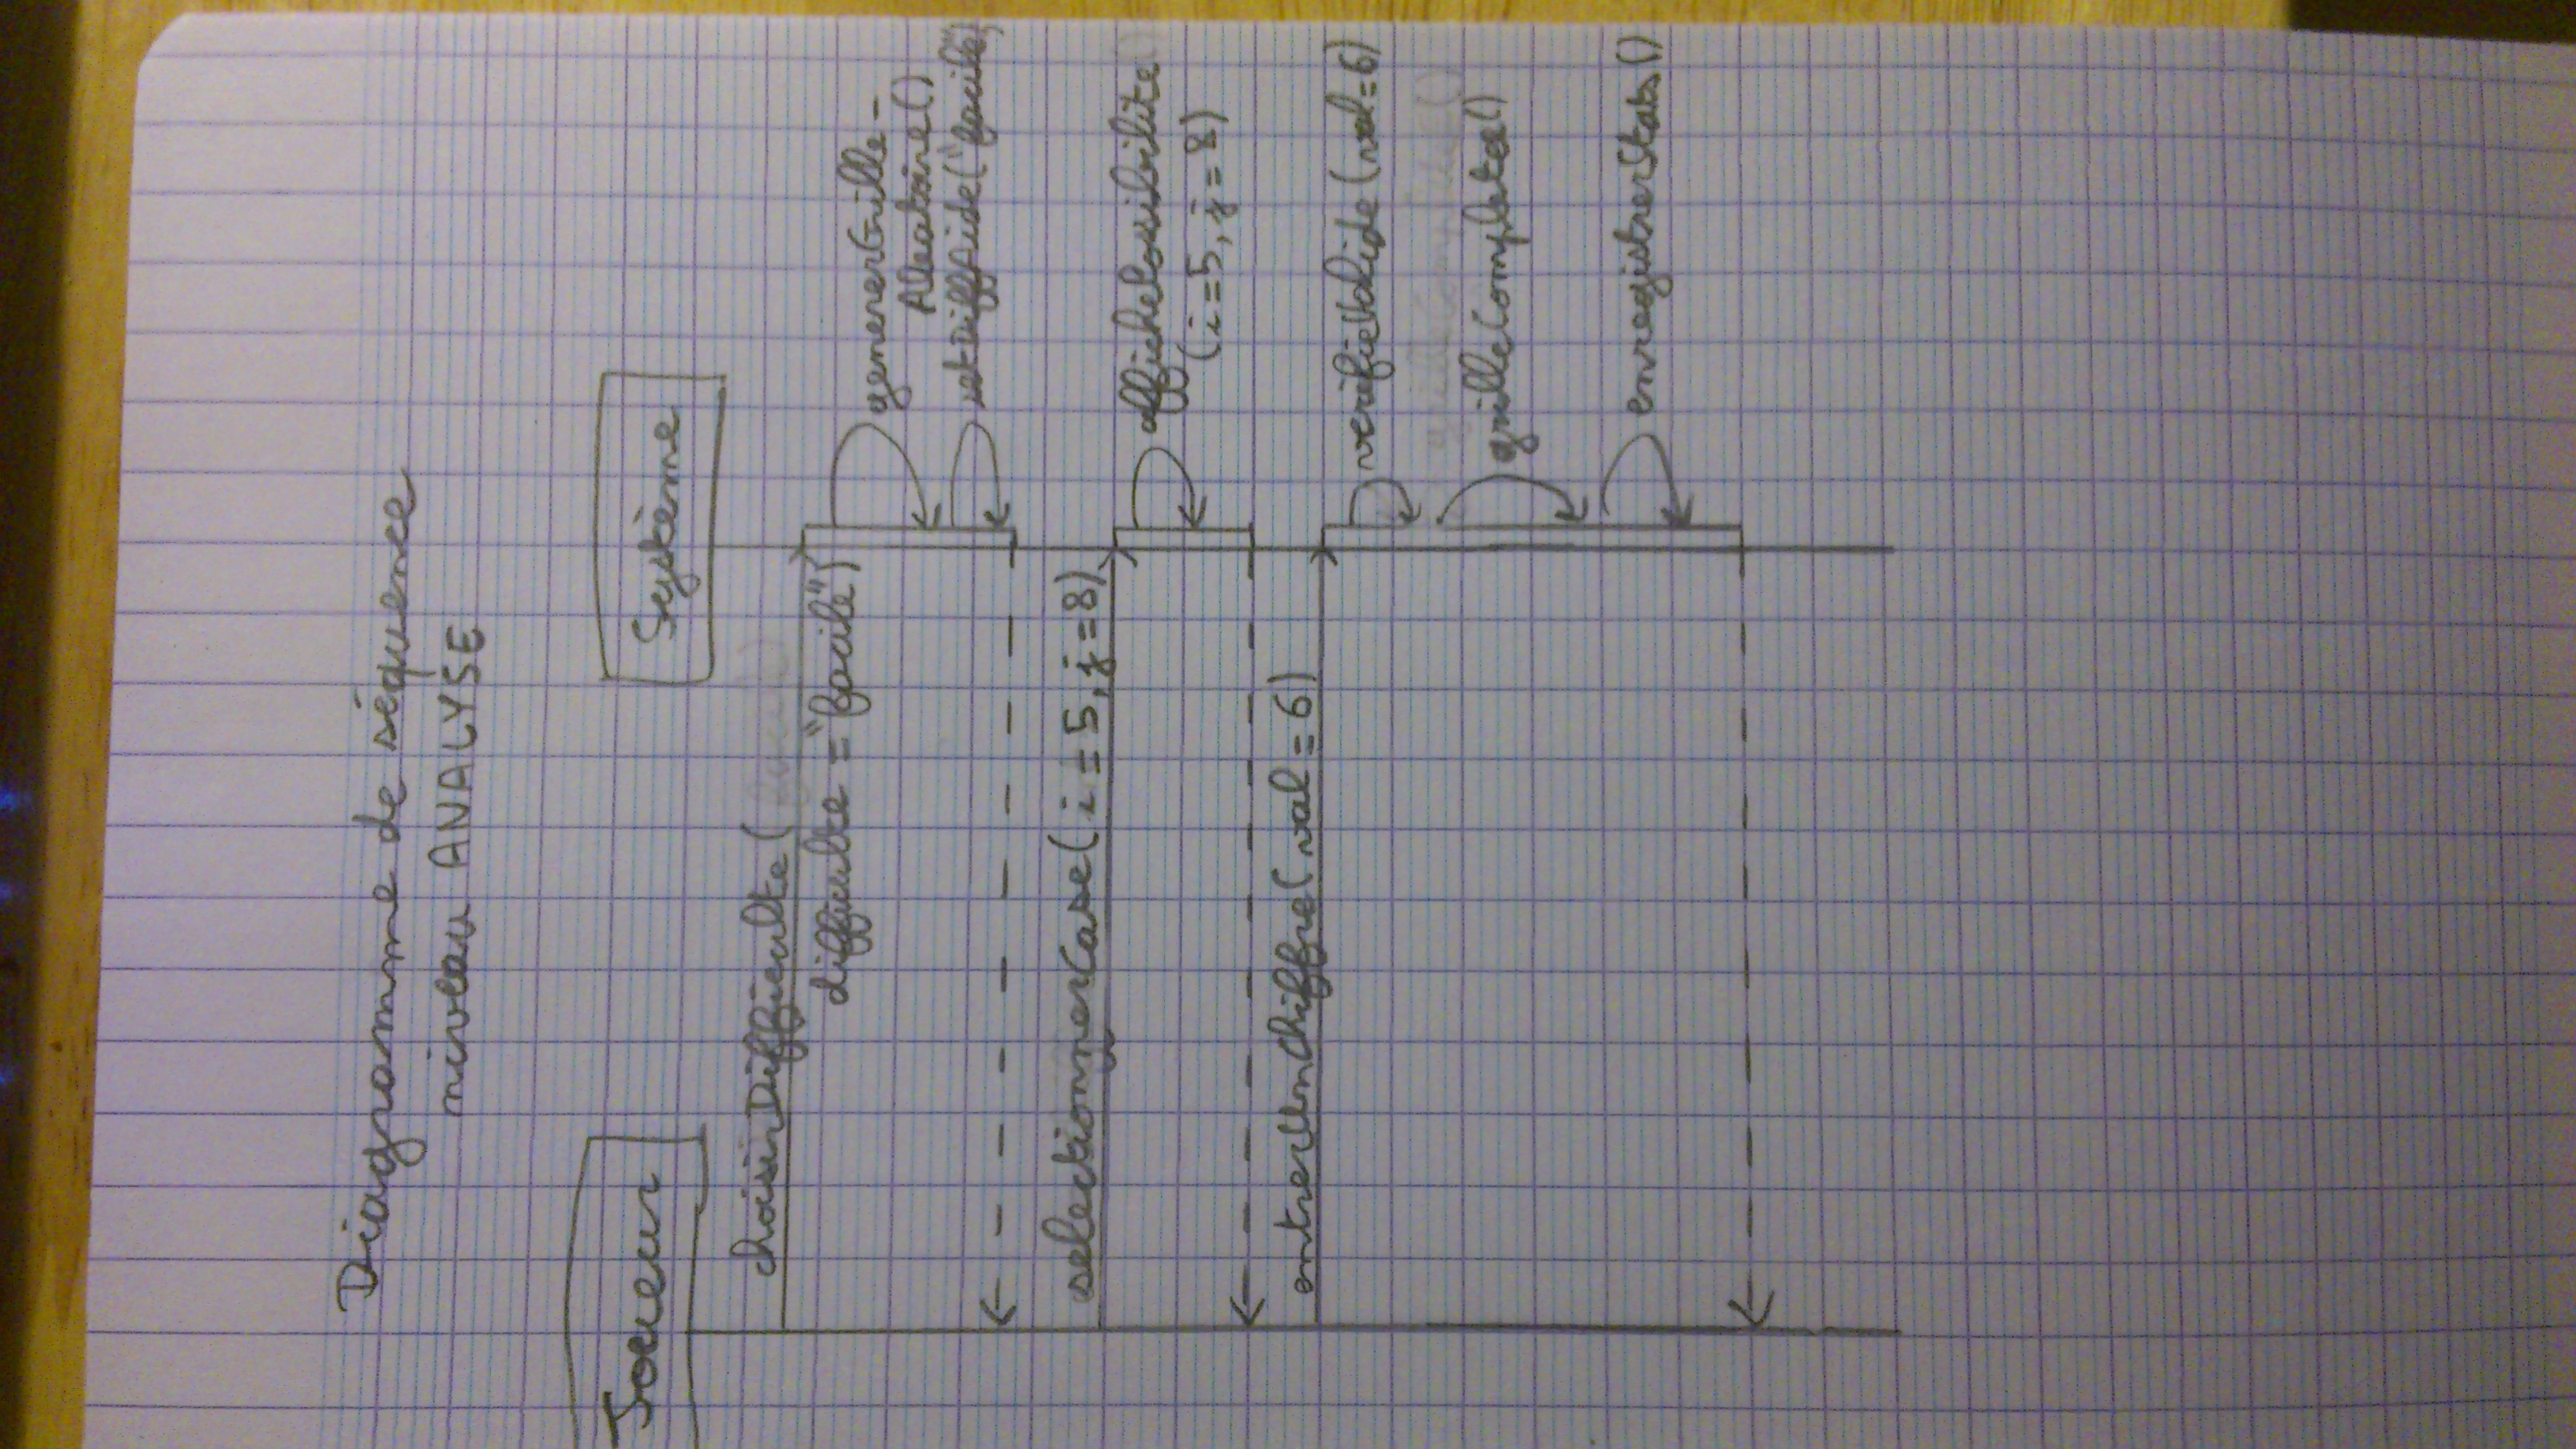 Diagramme de séquence
niveau ANALYSE
Joueur
Système
choisirDifficulte(
difficulte = "facile")
genererGrille-
Aleatoire()
setDiffAide("facile")
selectionnerCase(i=5, j=8)
affichePossibilite
(i=5, j=8)
entrerUnChiffre(val=6)
verifieValide(val=6)
grilleCompletee()
enregistrerStats()